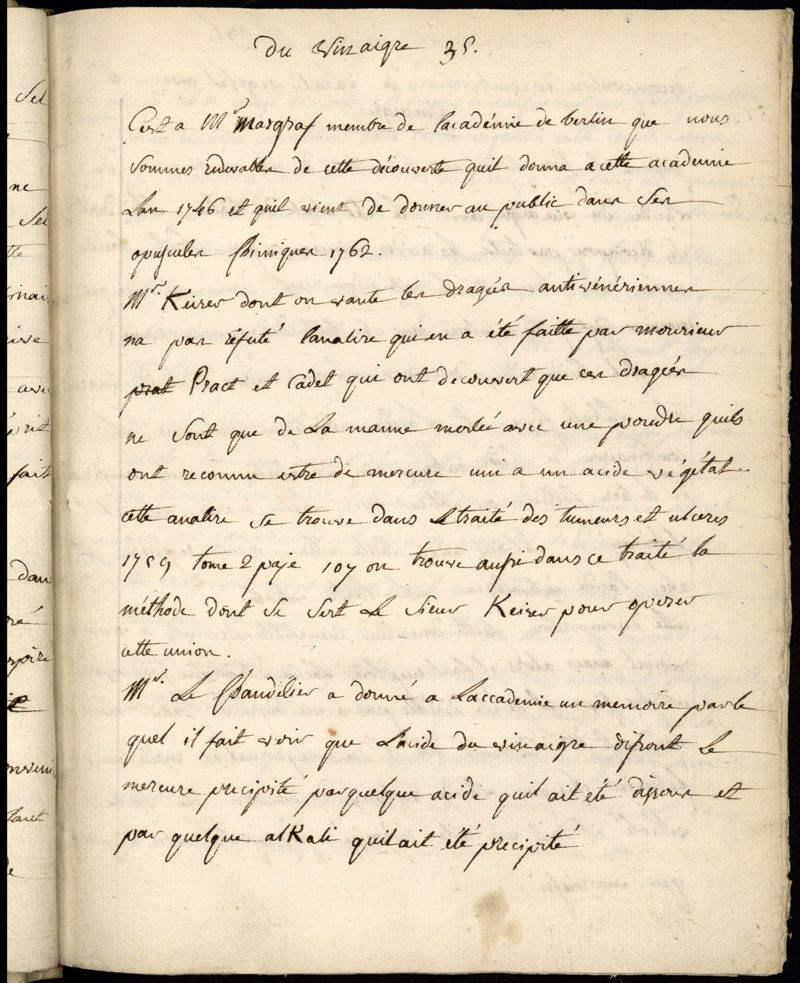 du Vinaigre 35.
C'est a Mr Margraf membre de l'académie de berlin que nous
sommes redevables de cette découverte quil donna a cette academie
Lan 1746 et quil vient de donner au public dans ses
opuscules chimiques 1762.
Mr. Keiser dont on vante les dragées antivénériennes
na pas réfuté lanalise qui en a été faitte par messieurs
prat Piact et Cadet qui ont decouvert que ces dragées
ne sont que de La manne meslée avec une poudre quils
ont reconnu estre de mercure uni a un acide végétal.
cette analise se trouve dans Le traité des tumeurs et ulceres
1759 tome 2 paje 107 on trouve aussi dans ce traité la
méthode dont se sert Le sieur Keiser pour operer
cette union.
Mr. Le Chandelier a donné a Laccademie un memoire par le
quel il fait voir que Lacide du vinaigre disout Le
mercure precipité par quelque acide quil ait été dissous et
par quelque alKali quil ait été precipité
Sel
ne
Sel
tte
ive
avec
fait
dans
ré